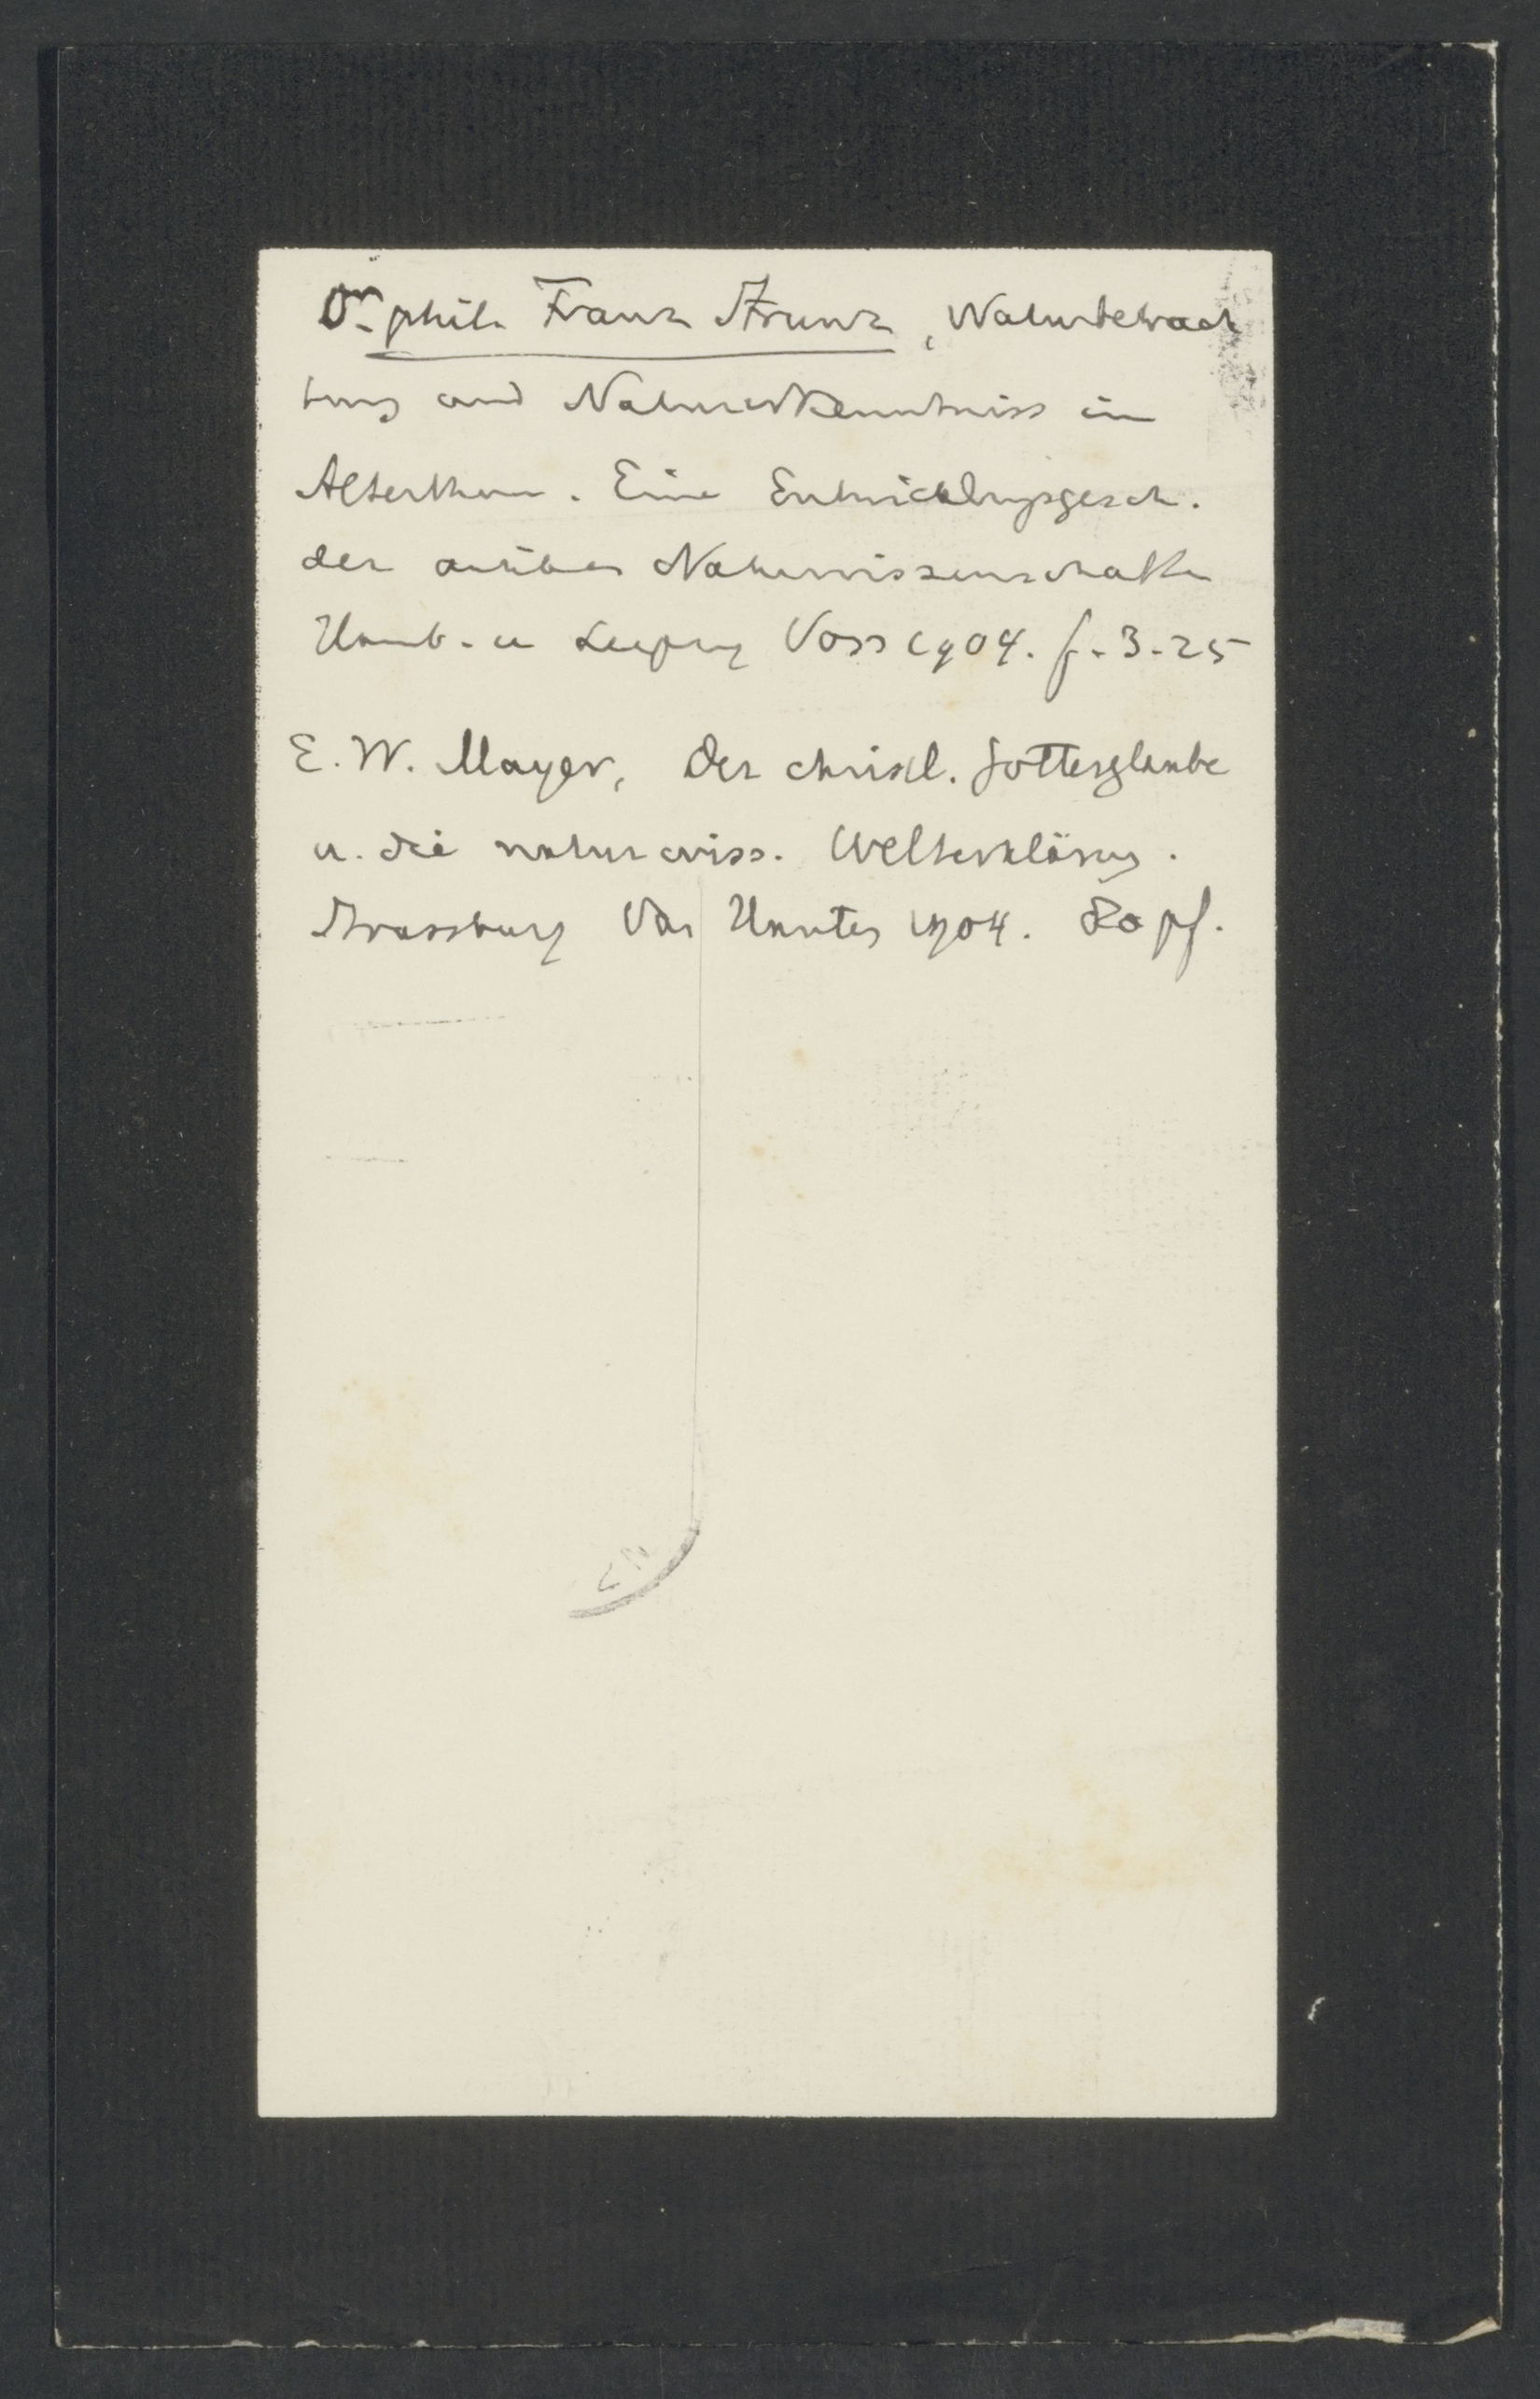 Dr. phil. Franz Strunz, Naturbetrach
tung und Naturerkenntniss im
Alterthum. Eine Entwicklungsgesch.
der antiken Naturwissenschaften
Hamb. u Leipzig Voss 1904. f. 3.25
E. W. Mayer, Der christl. Gottesglaube
u. die naturwiss. Welterklärung.
Strassburg Van Hauten 1904. 80 pf.